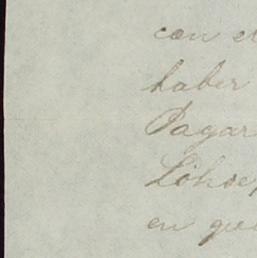 con el
haber
Pagar
Lohse
en que